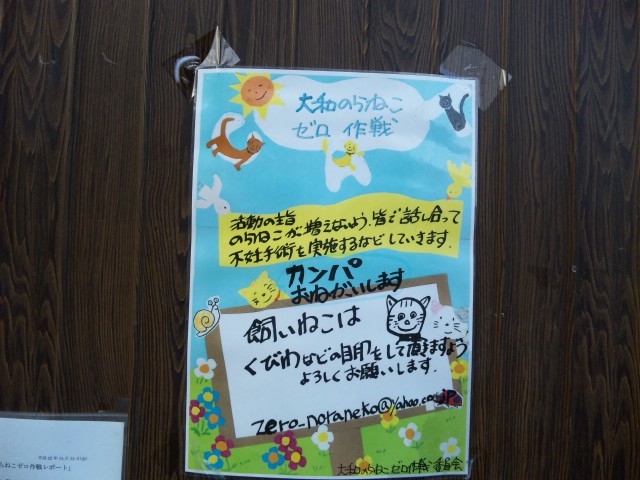 大和のらねこ
ゼロ 作戦
活動の主旨
のらねこが増えないよう、皆で話し合って
不妊手術を実施するなどしていきます。
カンパ
おねがいします
飼いねこは
くびわなどの目印をして頂きますよう
よろしくお願いします.
zero_noraneko@yahoo.co.jp
大和のらねこゼロ作戦委員会
ねこゼロ作戦レポート」